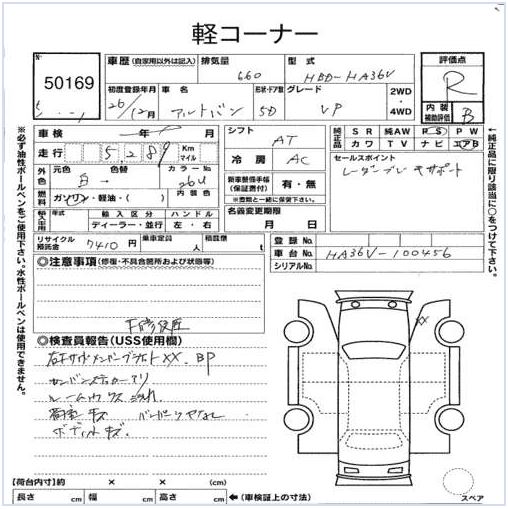 軽コーナー
No.
50169
車歴 (自家用以外は記入)
排気量
660
型式
HBD-HA36V
評価点
R
初度登録年月
26/12月
車名
アルトバン
形状・ドア数
5D
グレード
VP
2WD
・
4WD
内装
補助評価
B
車検 年 月
走行 5,289 Km マイル
外色
元色
白
色替
→
カラーNo.
26U
内装色
燃料
ガソリン・軽油・( )
輸入車
年式
輸入区分
ディーラー・並行
ハンドル
左・右
リサイクル預託金
7410円
乗定員
人
積載量
t
シフト
AT
冷房
AC
新車整備手帳
(保証書付)
有・無
※書類と一緒に保管して下さい。
名義変更期限
月 日
純正品
SR 純AW PS PW
カワ TV ナビ エアB
セールスポイント
レーダーブレーキサポート
登録No.
車台No.
HA36V-100456
シリアルNo.
◎注意事項 (修復・不具合箇所および状態等)
◎検査員報告 (USS使用欄)
XX BP
ボディ キズ
【荷台内寸】約 × × (cm)
長さ cm 幅 cm 高さ cm ←(車検証上の寸法)
スペア
XX
※必ず油性ボールペンをご使用下さい。水性ボールペンは使用できません。
←純正品に限り該当に○をつけて下さい。